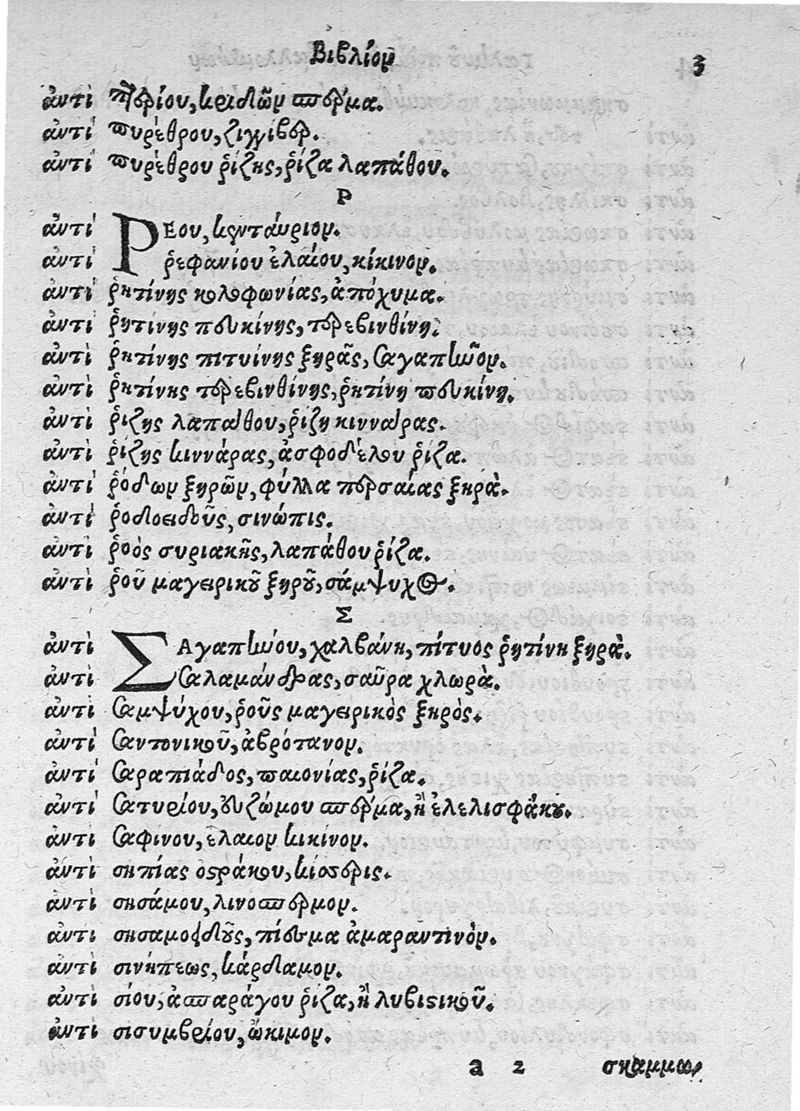 Βιβλίον 3
ἀντὶ πτερίου, κριδῶν σπέρμα.
ἀντὶ πυρέθρου, ζιγγίβερ.
ἀντὶ πυρέθρου ῥίζης, ῥίζα λαπάθου.
Ρ
ἀντὶ ΡΕου, κενταύριον.
ἀντὶ ῥεφανίου ἐλαίου, κίκινον.
ἀντὶ ῥητίνης κολοφωνίας, ἀπόχυμα.
ἀντὶ ῥητίνης πευκίνης, τερεβινθίνη.
ἀντὶ ῥητίνης πιτυίνης ξηρᾶς, σαγαπηῶον.
ἀντὶ ῥητίνης τερεβινθίνης, ῥητίνη πευκίνη.
ἀντὶ ῥίζης λαπάθου, ῥίζη κινναάρας.
ἀντὶ ῥίζης κιννάρας, ἀσφοδέλου ῥίζα.
ἀντὶ ῥόδων ξηρῶν, φύλλα περσαίας ξηρὰ.
ἀντὶ ῥοδοειδοῦς, σινώπις.
ἀντὶ ῥοὸς συριακῆς, λαπάθου ῥίζα.
ἀντὶ ῥοῦ μαγειρικοῦ ξηροῦ, σάμψυχος.
Σ
ἀντὶ ΣΑγαπηώου, χαλβάνη, πίτυος ῥητίνη ξηρὰ.
ἀντὶ σαλαμάνδρας, σαῦρα χλωρὰ.
ἀντὶ σαμψύχου, ῥοῦς μαγειρικὸς ξηρὸς.
ἀντὶ σαντονικοῦ, ἀβρότανον.
ἀντὶ σαραπιάδος, παιονίας, ῥίζα.
ἀντὶ σατυρίου, εὐζώμου σπέρμα, ἢ ἐλελισφάκου.
ἀντὶ σαφίνου, ἔλαιον κικίνον.
ἀντὶ σηπίας οστράκου, κίσσερις.
ἀντὶ σησάμου, λινοσπερμον.
ἀντὶ σησαμοειδοῦς, πίεσμα ἀμαραντινὸν.
ἀντὶ σινήπεως, κάρδαμον.
ἀντὶ σίου, ἀσπαράγου ῥίζα, ἢ λυβιστικοῦ.
ἀντὶ σισυμβρίου, ὤκιμον.
a 2 σκαμμω